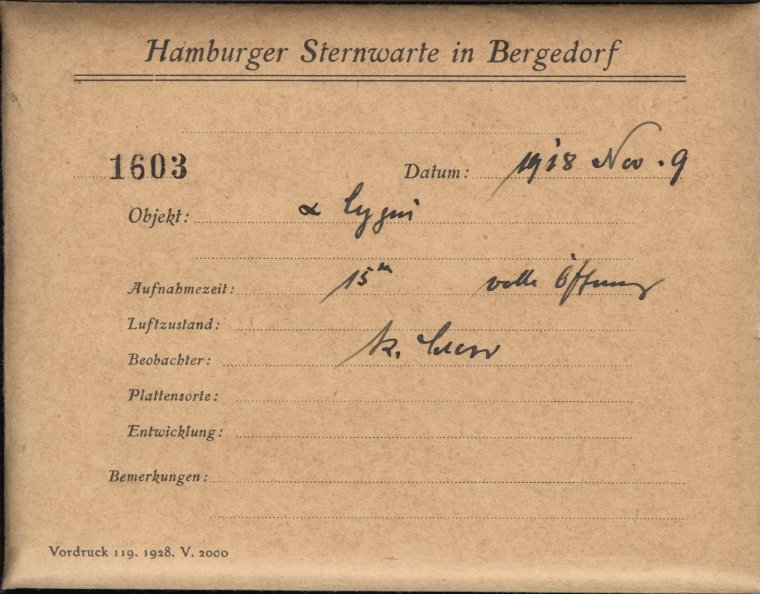 Hamburger Sternwarte in Bergedorf
1603 Datum: 1918 Nov. 9
Objekt: α Cygni
Aufnahmezeit: 15ᵐ volle Öffnung
Luftzustand:
Beobachter: K.
Plattensorte:
Entwicklung:
Bemerkungen:
Vordruck 119. 1928. V. 2000